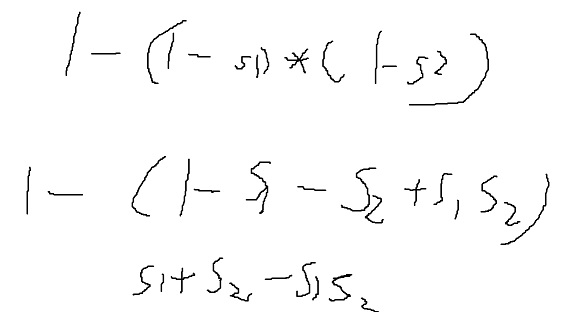 1-(1-s1)*(1-s2)
1-(1-s1-s2+s1s2)
s1+s2-s1s2